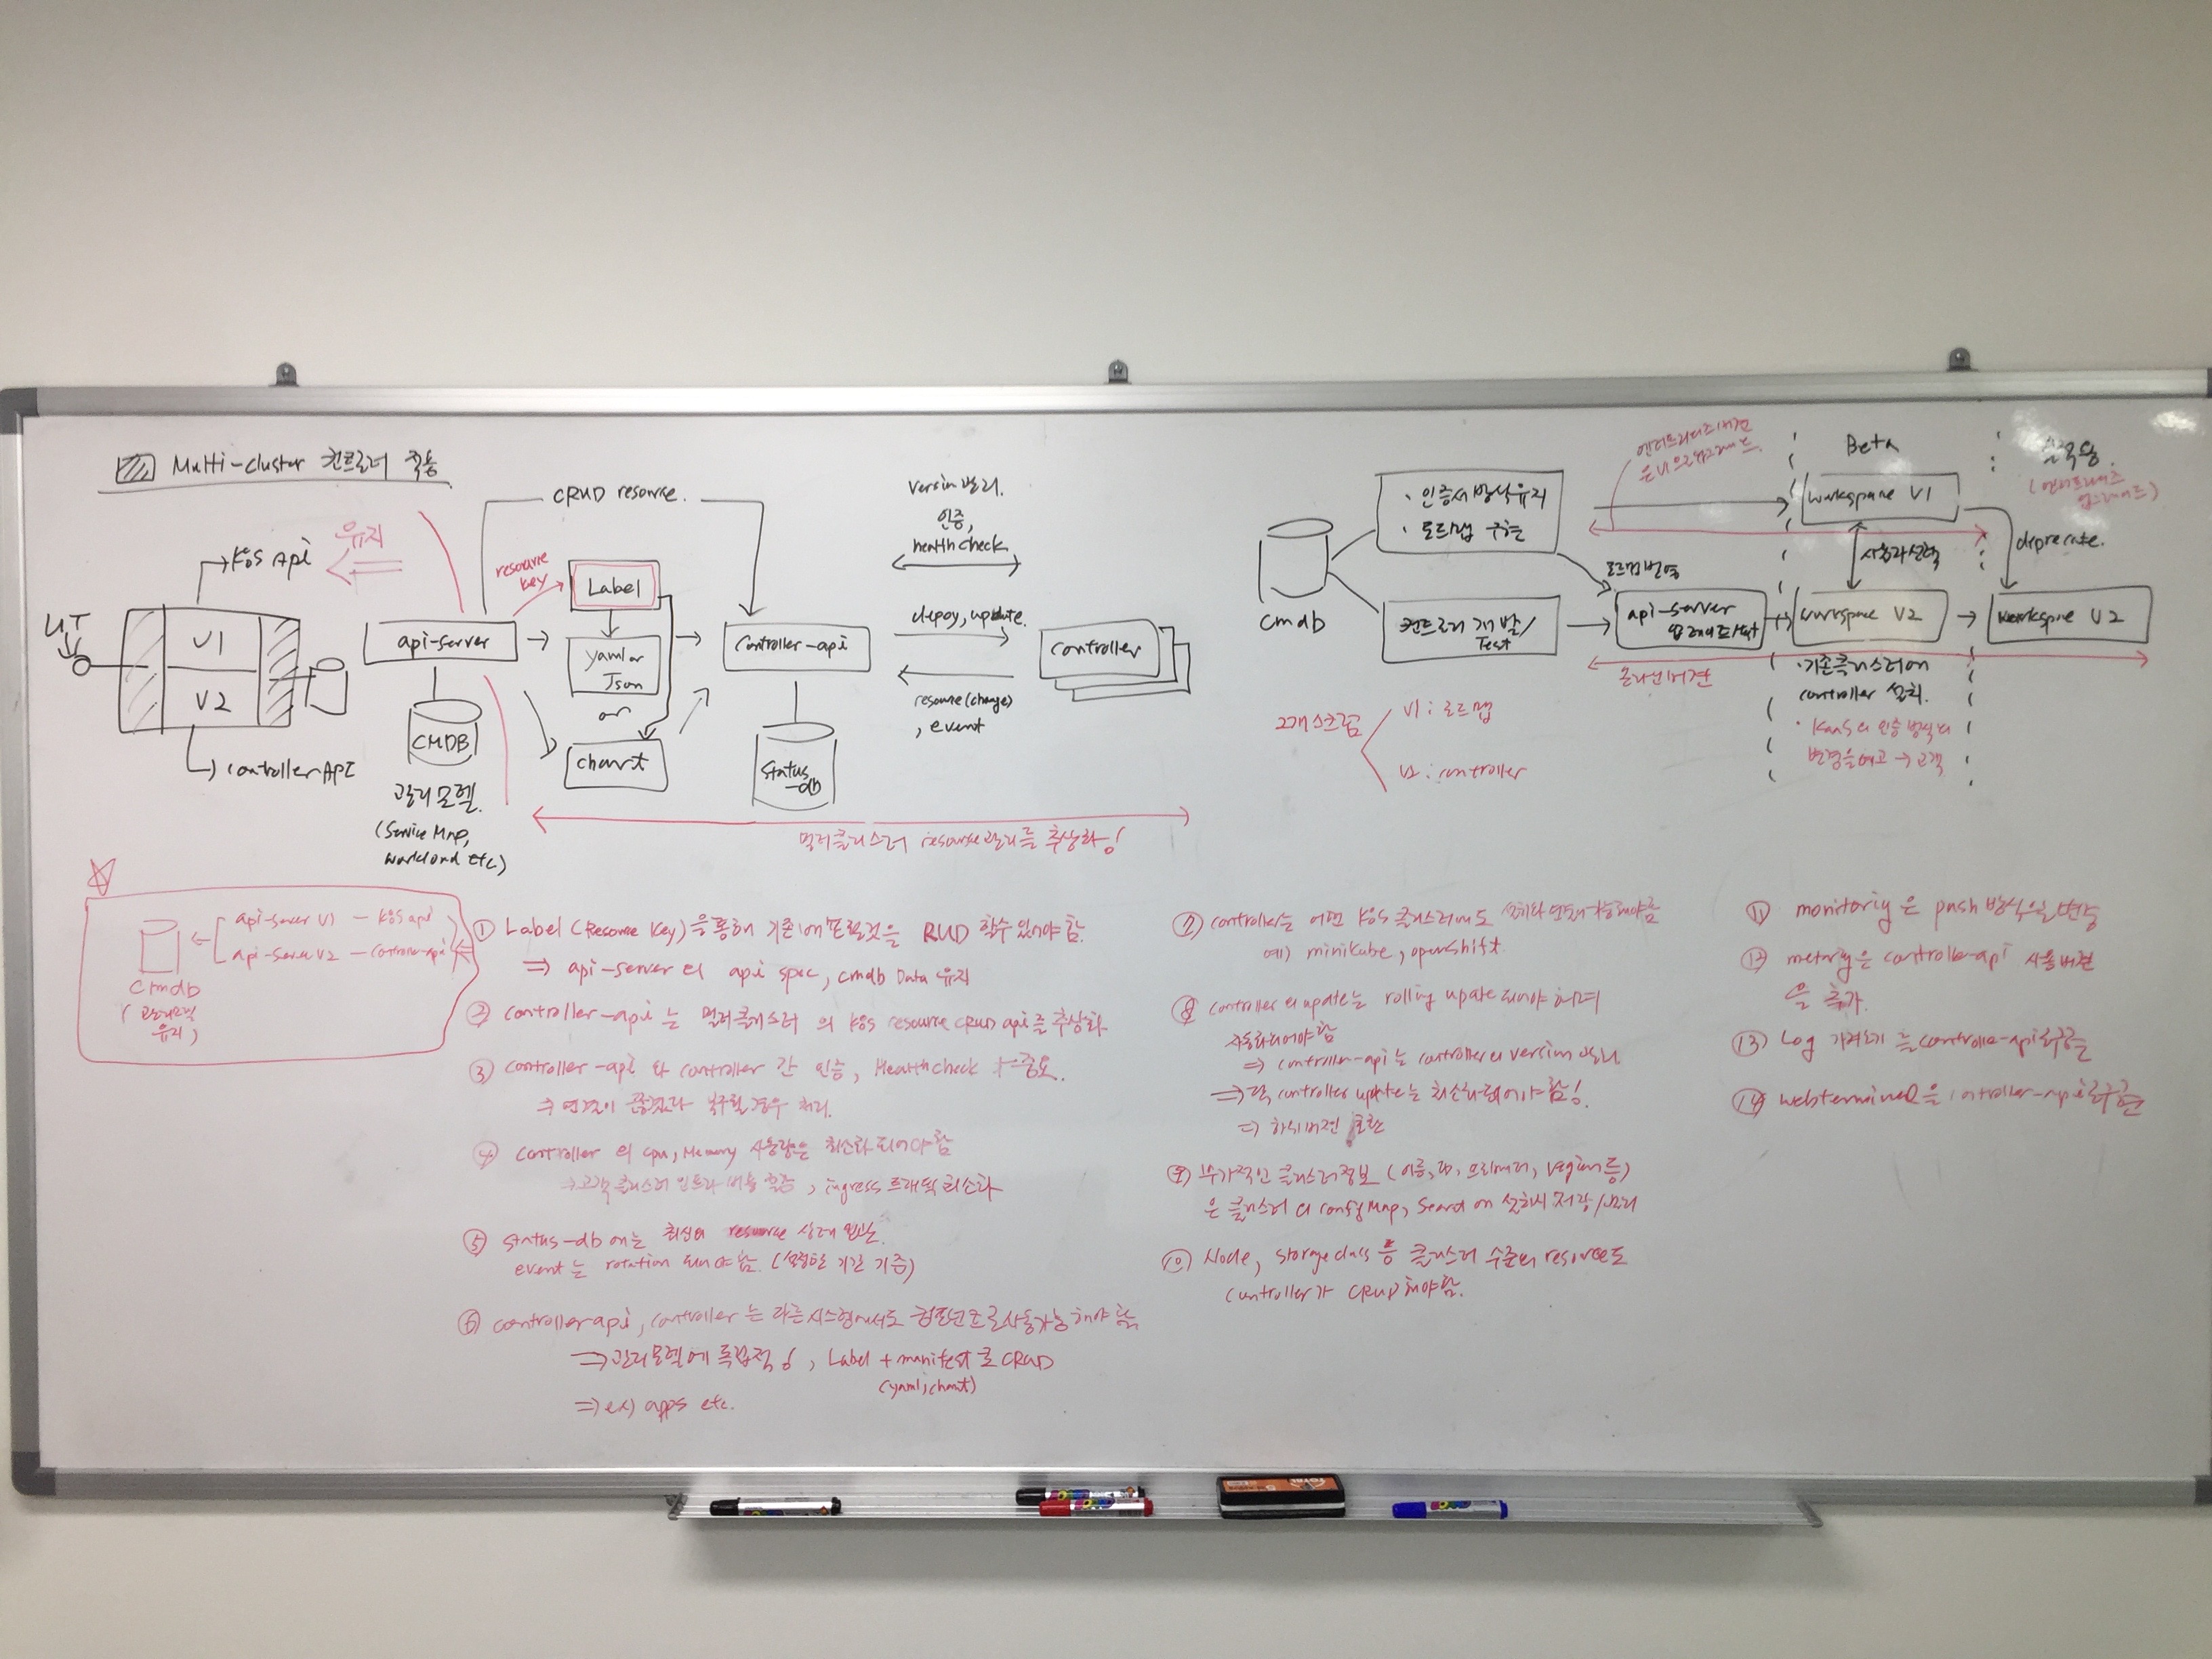 Multi-cluster 컨트롤러 적용
K8S Api
유지
UI
V1
V2
controller API
api-server
CMDB
관리모델.
(Service Map,
workload etc)
CRUD resource.
resource
key
Label
yaml or
Json
or
chart
controller-api
status
-db
version 관리.
인증,
health check
depoy, update.
resource(change)
, event
controller
멀티클러스터 resource관리를 추상화!
cmdb
· 인증서방식유지
· 로드맵 구현
컨트롤러 개발/
Test
엔터프라이즈버전
은 V1으로업그레이드.
로드맵반영
api-server
온라인버전
Beta
workspace V1
사용자선택
workspace V2
· 기존클러스터에
controller 설치.
· KaaS의 인증 방식의
변경을예고 → 고객
(엔터프라이즈
업그레이드)
deprecate.
workspace V2
2개 스트림
V1 : 로드맵
V2 : controller
api-server V1 — K8S api
api-server V2 — Controller-api
cmdb
(관리모델
유지)
① Label (Resource Key)을 통해 기존에 배포된것을 RUD 할수 있어야 함.
⇒ api-server의 api spec, cmdb Data 유지
② controller-api는 멀티클러스터의 K8S resource CRUD api를 추상화
③ controller-api와 controller 간 인증, Health check가 중요.
⇒ 연결이 끊겼다 복구될경우 처리.
④ controller의 cpu, Memory 사용량은 최소화 되어야 함
⇒ 고객 클러스터 인프라 비용 측증, ingress 트래픽 최소화
⑤ status-db에는 최신의 resource 상태
event는 rotation 되어야 함. (설정한 기간 기준)
⑥ controller-api, controller는 다른시스템에서도 컴포넌트로사용가능해야 함.
⇒ 관리모델에 독립적!, Label + manifest로 CRUD
(yaml, chart)
⇒ ex) apps etc.
⑦ controller는 어떤 K8S 클러스터에도 설치와 연동가능해야함
예) minikube, openshift.
⑧ controller의 update는 rolling update 되어야 하며
자동화되어야 함
⇒ controller-api는 controller의 version 관리
⇒ 단, controller update는 최소화되어야 함!
⇒ 하위버전 호환
⑨ 부가적인 클러스터정보 (이름, ID, 프로바이더, region등)
은 클러스터의 configMap, Secret에 설치시 저장/관리
⑩ Node, storageclass 등 클러스터 수준의 resource도
controller가 CRUD해야함.
⑪ monitoring은 push 방식으로변경
⑫ metering은 controller-api 사용버전
을 추가.
⑬ Log 가져오기를 controller-api로구현
⑭ webterminal을 controller-api로구현